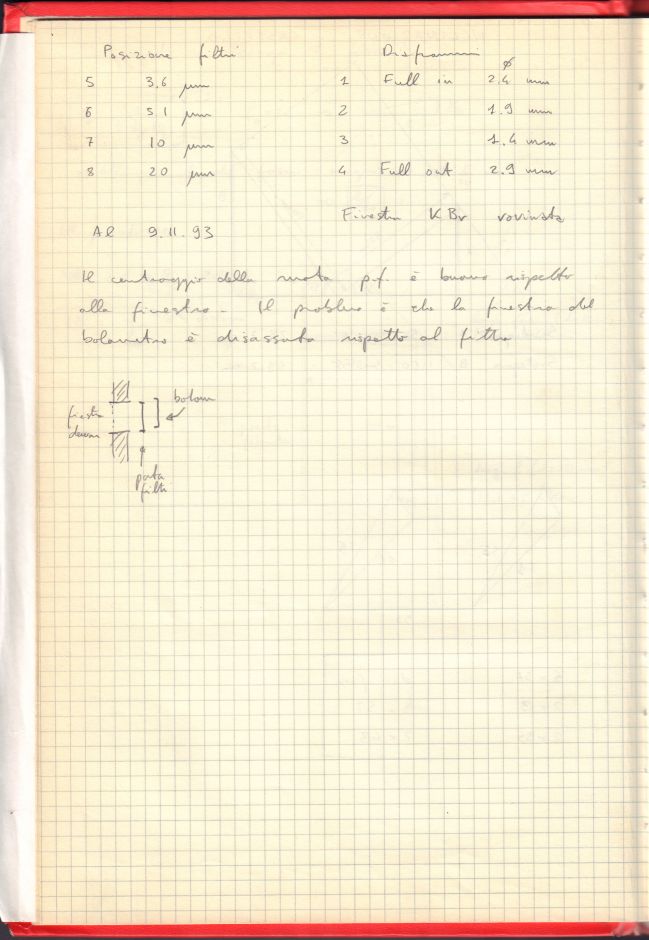 Posizione filtri
5 3,6 μm
6 5,1 μm
7 10 μm
8 20 μm
Diaframmi
ø
1 Full in 2.4 mm
2 1.9 mm
3 1.4 mm
4 Full out 2.9 mm
Finestra KBr rovinata
Al 9.11.93
Il centraggio della ruota p.f. è buono rispetto
alla finestra. Il problema è che la finestra del
bolometro è disassata rispetto al filtro
finestra
dewar
bolom
porta
filtri